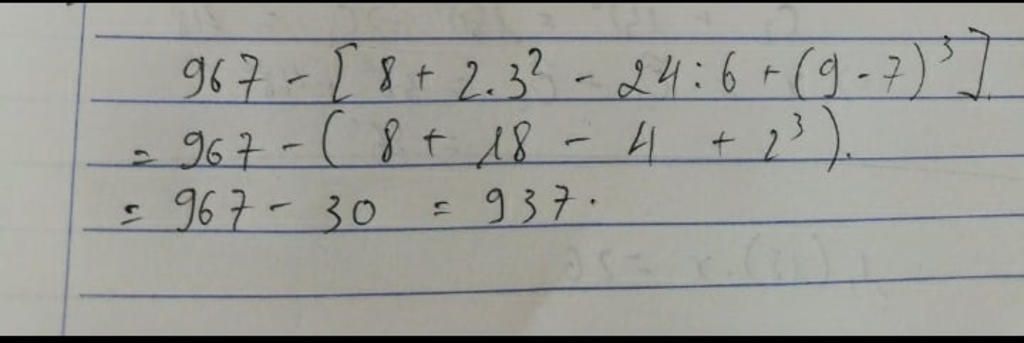 967 - [ 8 + 2.3² - 24 : 6 + (9 - 7)³ ].
= 967 - ( 8 + 18 - 4 + 2³ ).
= 967 - 30 = 937.